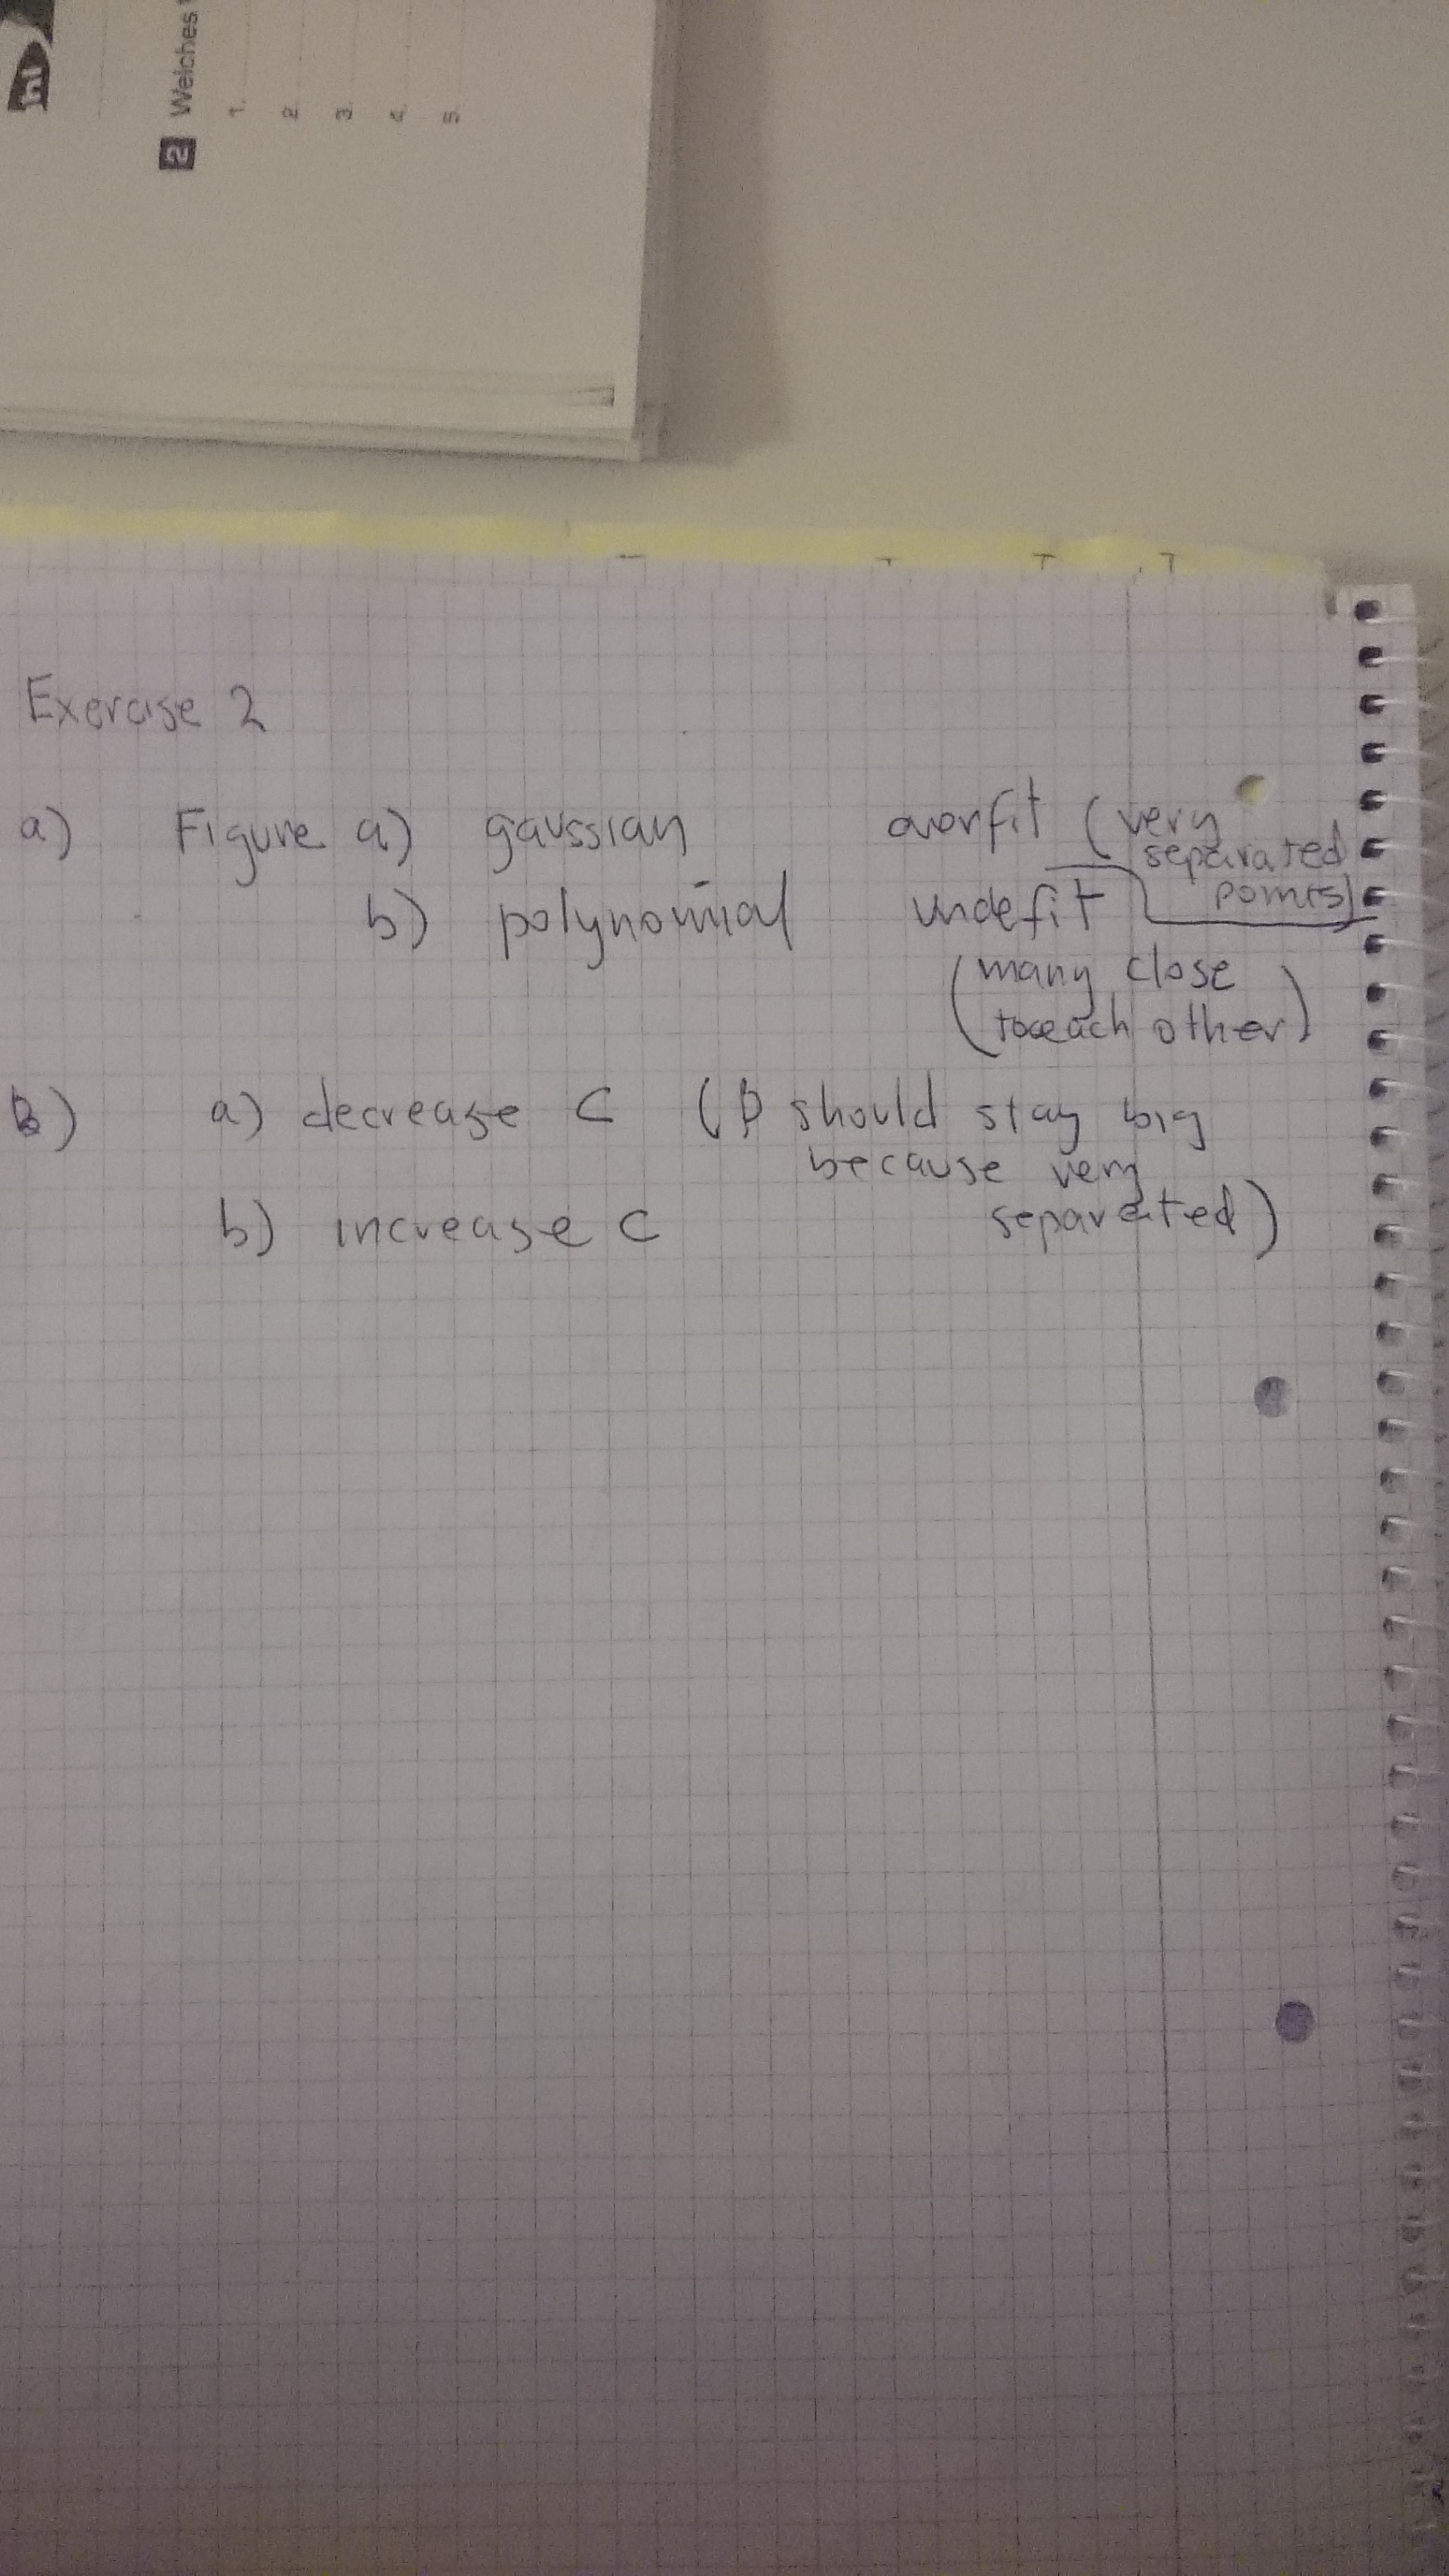 2 Welches
1.
2.
3.
4.
5.
Exercise 2
a) Figure a) gaussian overfit (very
separated
points)
b) polynomial undefit
(many close
to each other)
B) a) decrease C ( should stay big
because very
separated)
b) increase C